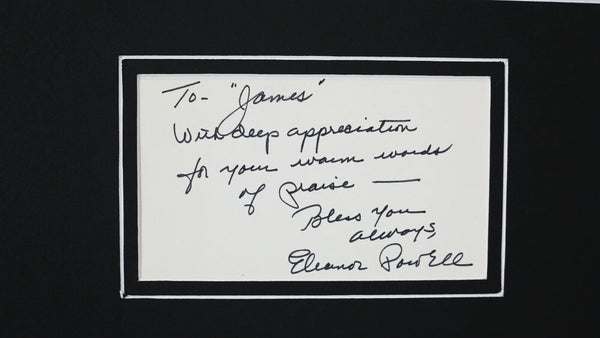 To - "James"
With deep appreciation
for your warm words
of praise —
Bless you
always,
Eleanor Powell